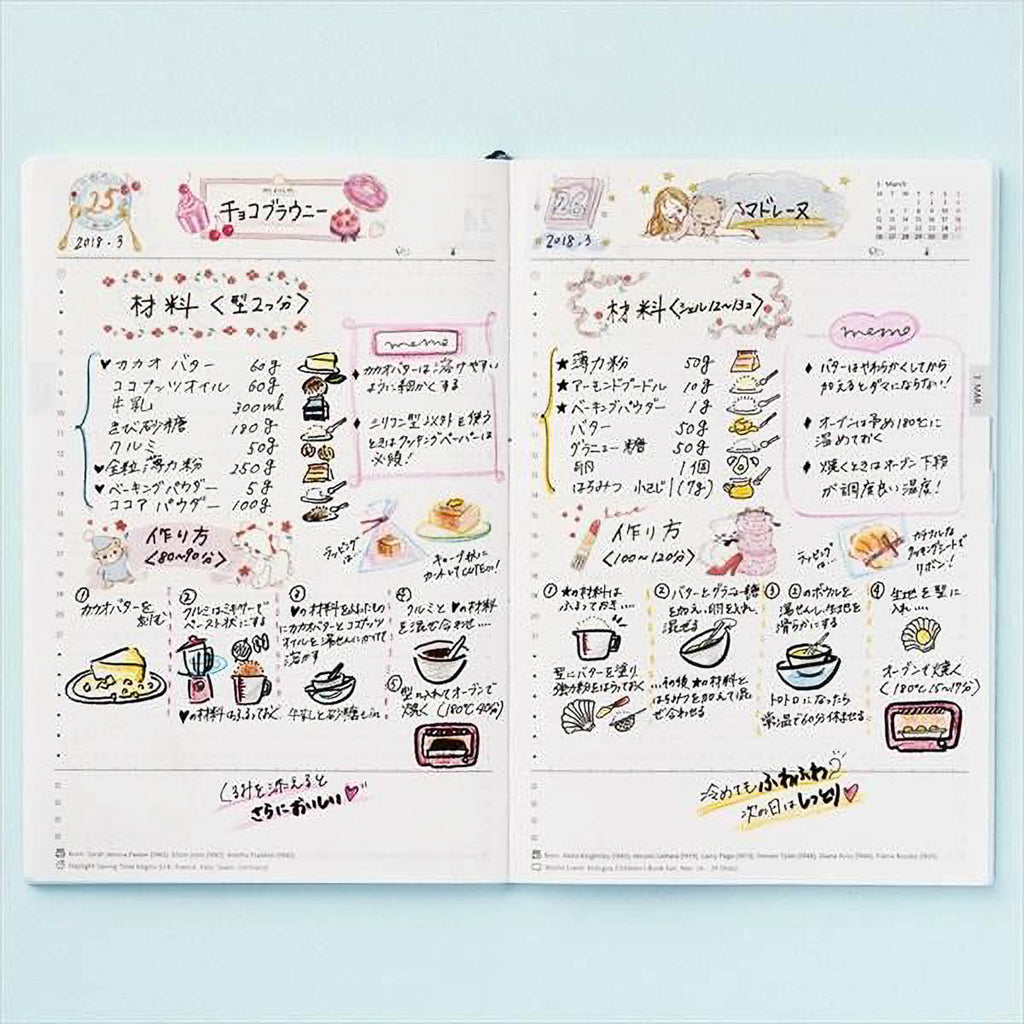 25
2018.3
チョコブラウニー
材料〈型2つ分〉
♥カカオバター 60g
ココナッツオイル 60g
牛乳 300ml
きび砂糖 180g
クルミ 50g
♥全粒薄力粉 250g
♥ベーキングパウダー 5g
ココアパウダー 100g
memo
♦カカオバターは溶けやすい
ように細かくする
♦シリコン型以外を使う
ときはクッキングペーパーは
必須!
作り方
〈80〜90分〉
ラッピング
は…
①
カカオバターを
刻む
②
クルミはミキサーで
ペースト状にする
♥の材料はふるっておく
③
溶かす
④
クルミと♥の材料
を混ぜ合わせ…
⑤型に入れてオーブンで
焼く(180℃40分)
くるみを添えると
さらにおいしい♥
26
2018.3
マドレーヌ
3 March
材料〈シェル12〜13コ〉
★薄力粉 50g
★アーモンドプードル 10g
★ベーキングパウダー 1g
バター 50g
グラニュー糖 50g
卵 1個
はちみつ 小さじ1(7g)
memo
♦バターはやわらかくしてから
加えるとダマにならない!
♦オーブンは予め180℃に
温めておく
♦焼くときはオーブン下段
が調度良い温度!
MAR.
作り方
〈100〜120分〉
Love
ラッピング
は…!!
カラフルな
ワッキングシートで
リボン!
①★の材料は
ふるっておき…
型にバターを塗り
強力粉をはらっておく
②バターとグラニュー糖
を加え、卵を入れ
混ぜる
…その後★の材料と
はちみつを加えて混
ぜ合わせる
③②のボウルを
湯せんし、生地を
滑らかにする
トロトロになったら
常温で60分休ませる
④生地を型に
入れ…
オーブンで焼く
(180℃15〜17分)
冷めてもふわふわ
次の日はしっとり♥